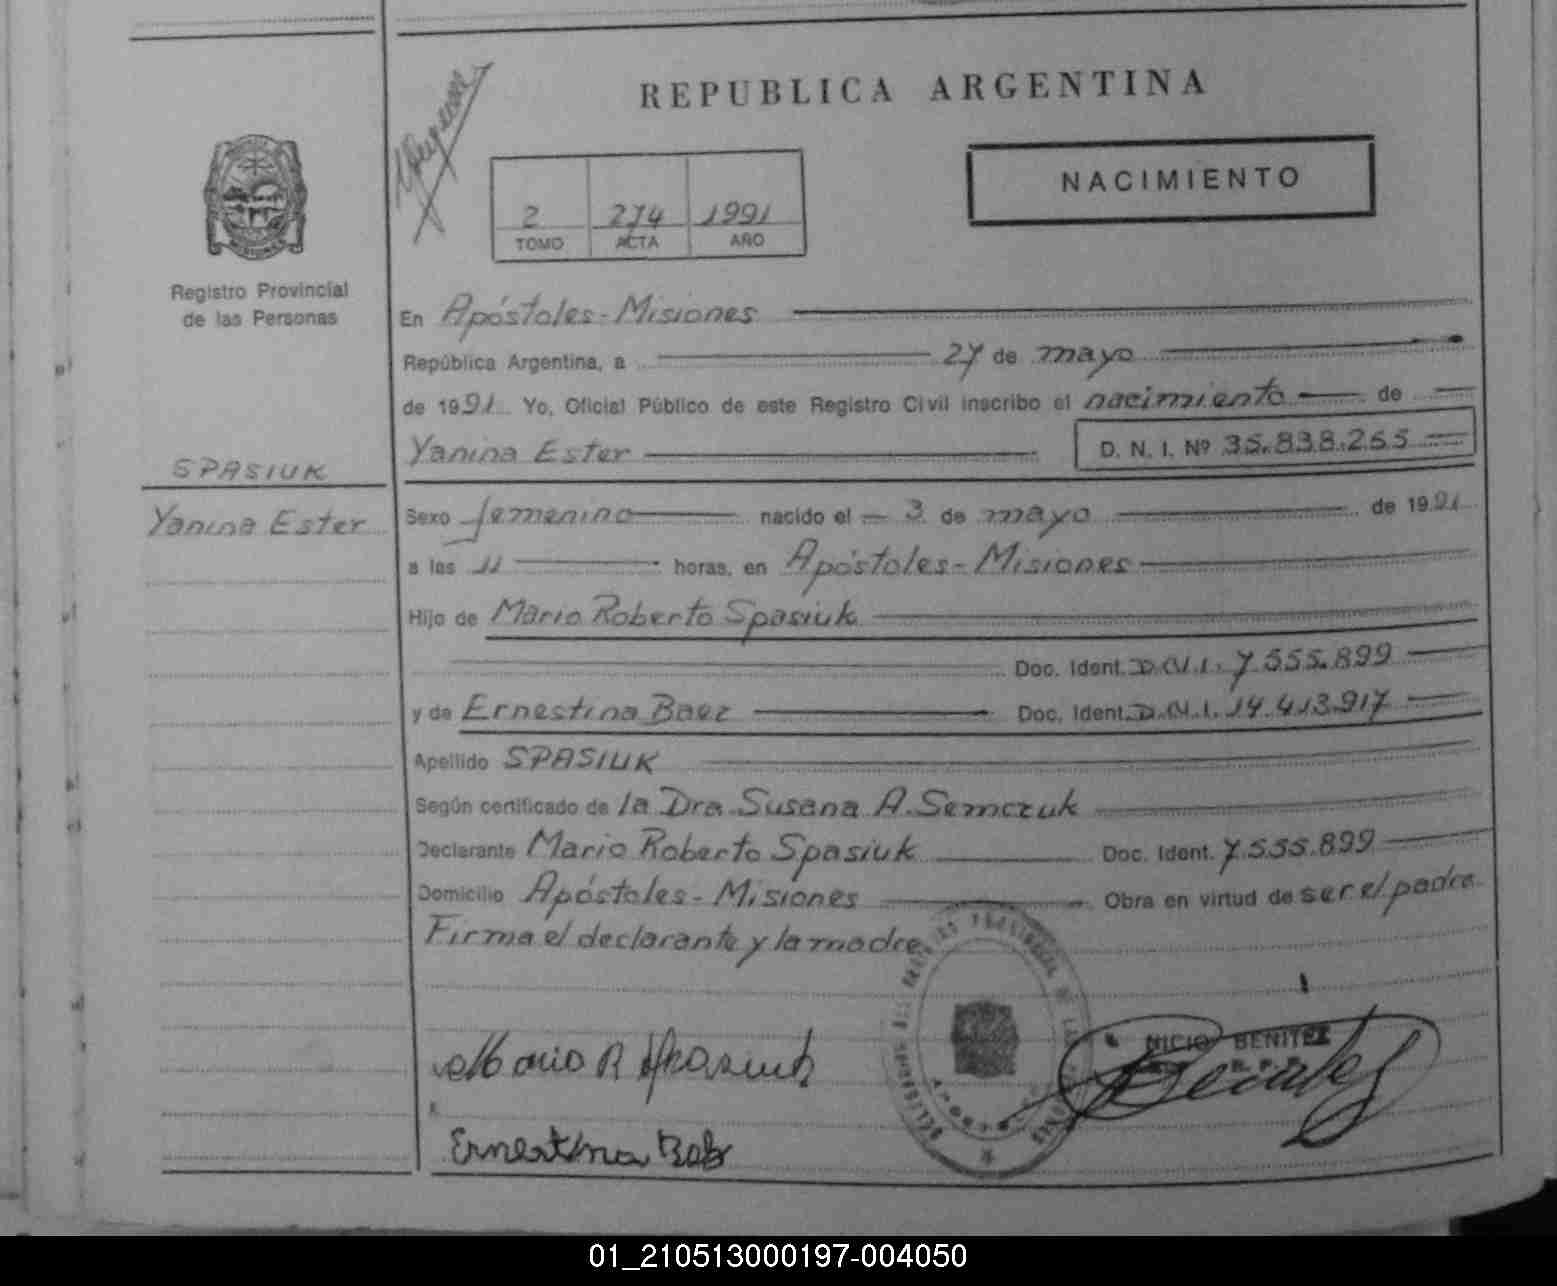 REPUBLICA ARGENTINA
NACIMIENTO
2 274 1991
TOMO ACTA AÑO
Registro Provincial
de las Personas
En Apóstoles-Misiones
República Argentina, a 27 de mayo
de 1991 Yo, Oficial Público de este Registro Civil inscribo el nacimiento de
Yanina Ester D. N. I. Nº 35.838.255
SPASIUK
Yanina Ester
Sexo femenino nacido el 3 de mayo de 1991
a las 11 horas, en Apóstoles-Misiones
Hijo de Mario Roberto Spasiuk
Doc. Ident. D.N.I. 7.555.899
y de Ernestina Baez Doc. Ident. D.N.I. 14.413.917
Apellido SPASIUK
Según certificado de la Dra. Susana A. Semczuk
Declarante Mario Roberto Spasiuk Doc. Ident. 7.555.899
Domicilio Apóstoles-Misiones Obra en virtud de ser el padre.
Firma el declarante y la madre
Mario R Spasiuk
NICIO BENITEZ
Ernestina
01_210513000197-004050